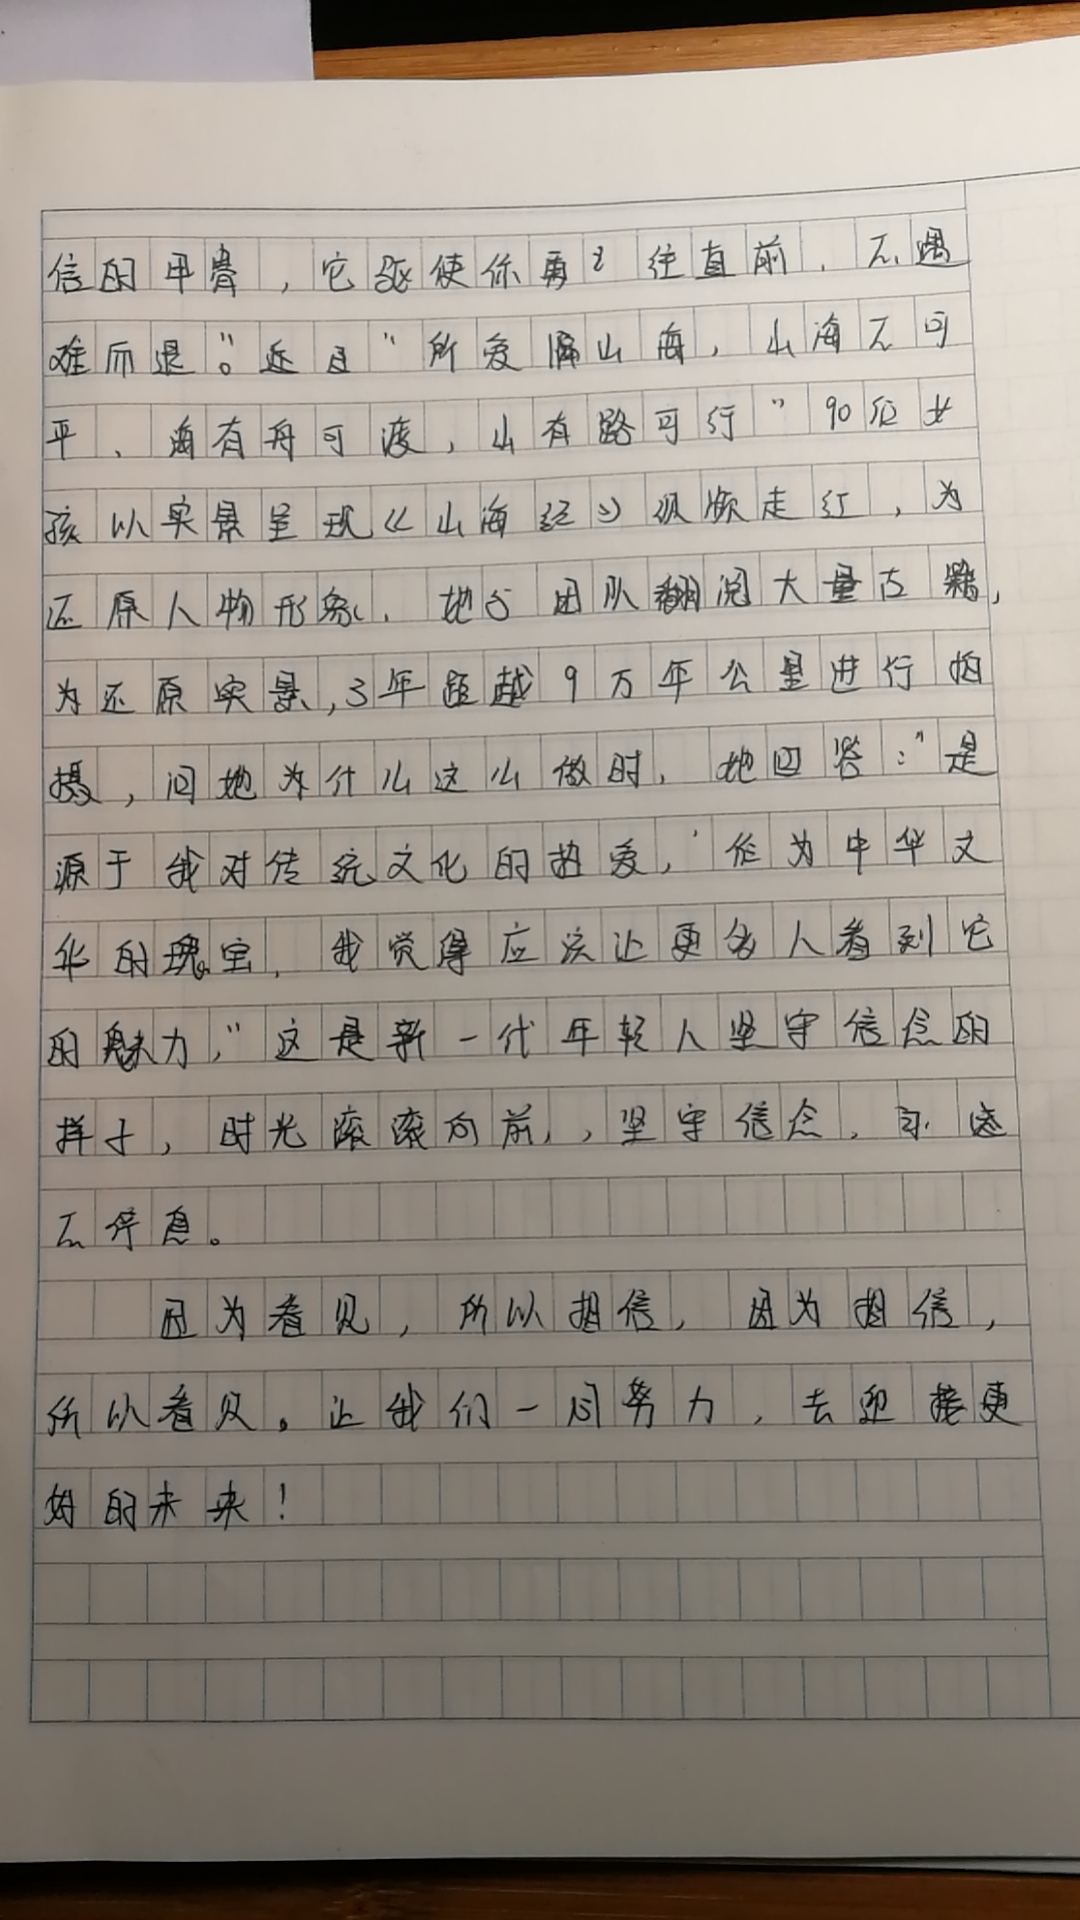 信的甲胄，它驱使你勇往直前，不遇
难而退”。近日“所爱隔山海，山海不可
平，海有舟可渡，山有路可行”90后女
孩以实景呈现《山海经》视频走红，为
还原人物形象，她与团队翻阅大量古籍，
为还原实景，3年超越9万年公里进行拍
摄，问她为什么这么做时，她回答：“是
源于我对传统文化的热爱，作为中华文
化的瑰宝，我觉得应该让更多人看到它
的魅力，”这是新一代年轻人坚守信念的
样子，时光滚滚向前，，坚守信念，永远
不停息。
因为看见，所以相信，因为相信，
所以看见。让我们一同努力，去迎接更
好的未来！